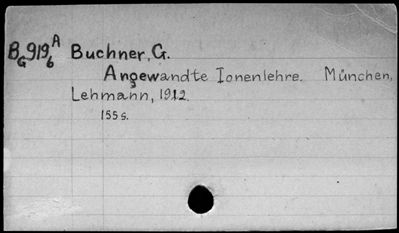 B_G 919_6^A Buchner, G.
Angewandte Ionenlehre. München,
Lehmann, 1912.
155 s.